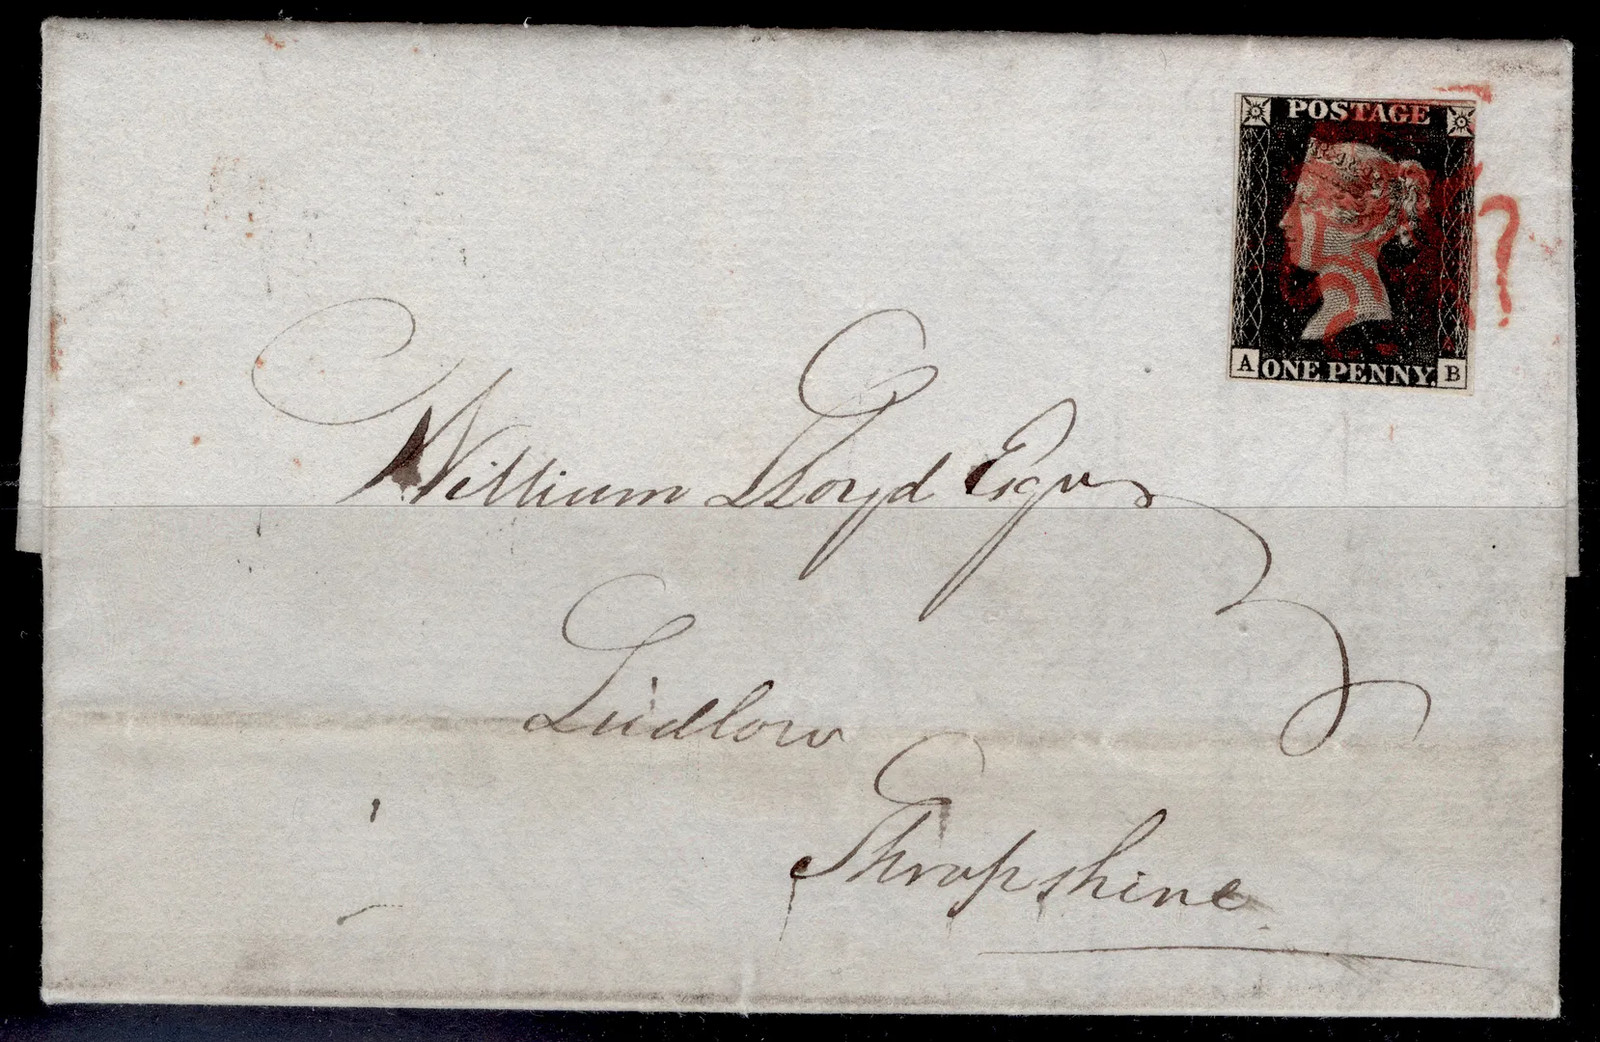 POSTAGE
A ONE PENNY. B
William Lloyd Esqre
Ludlow
Shropshire